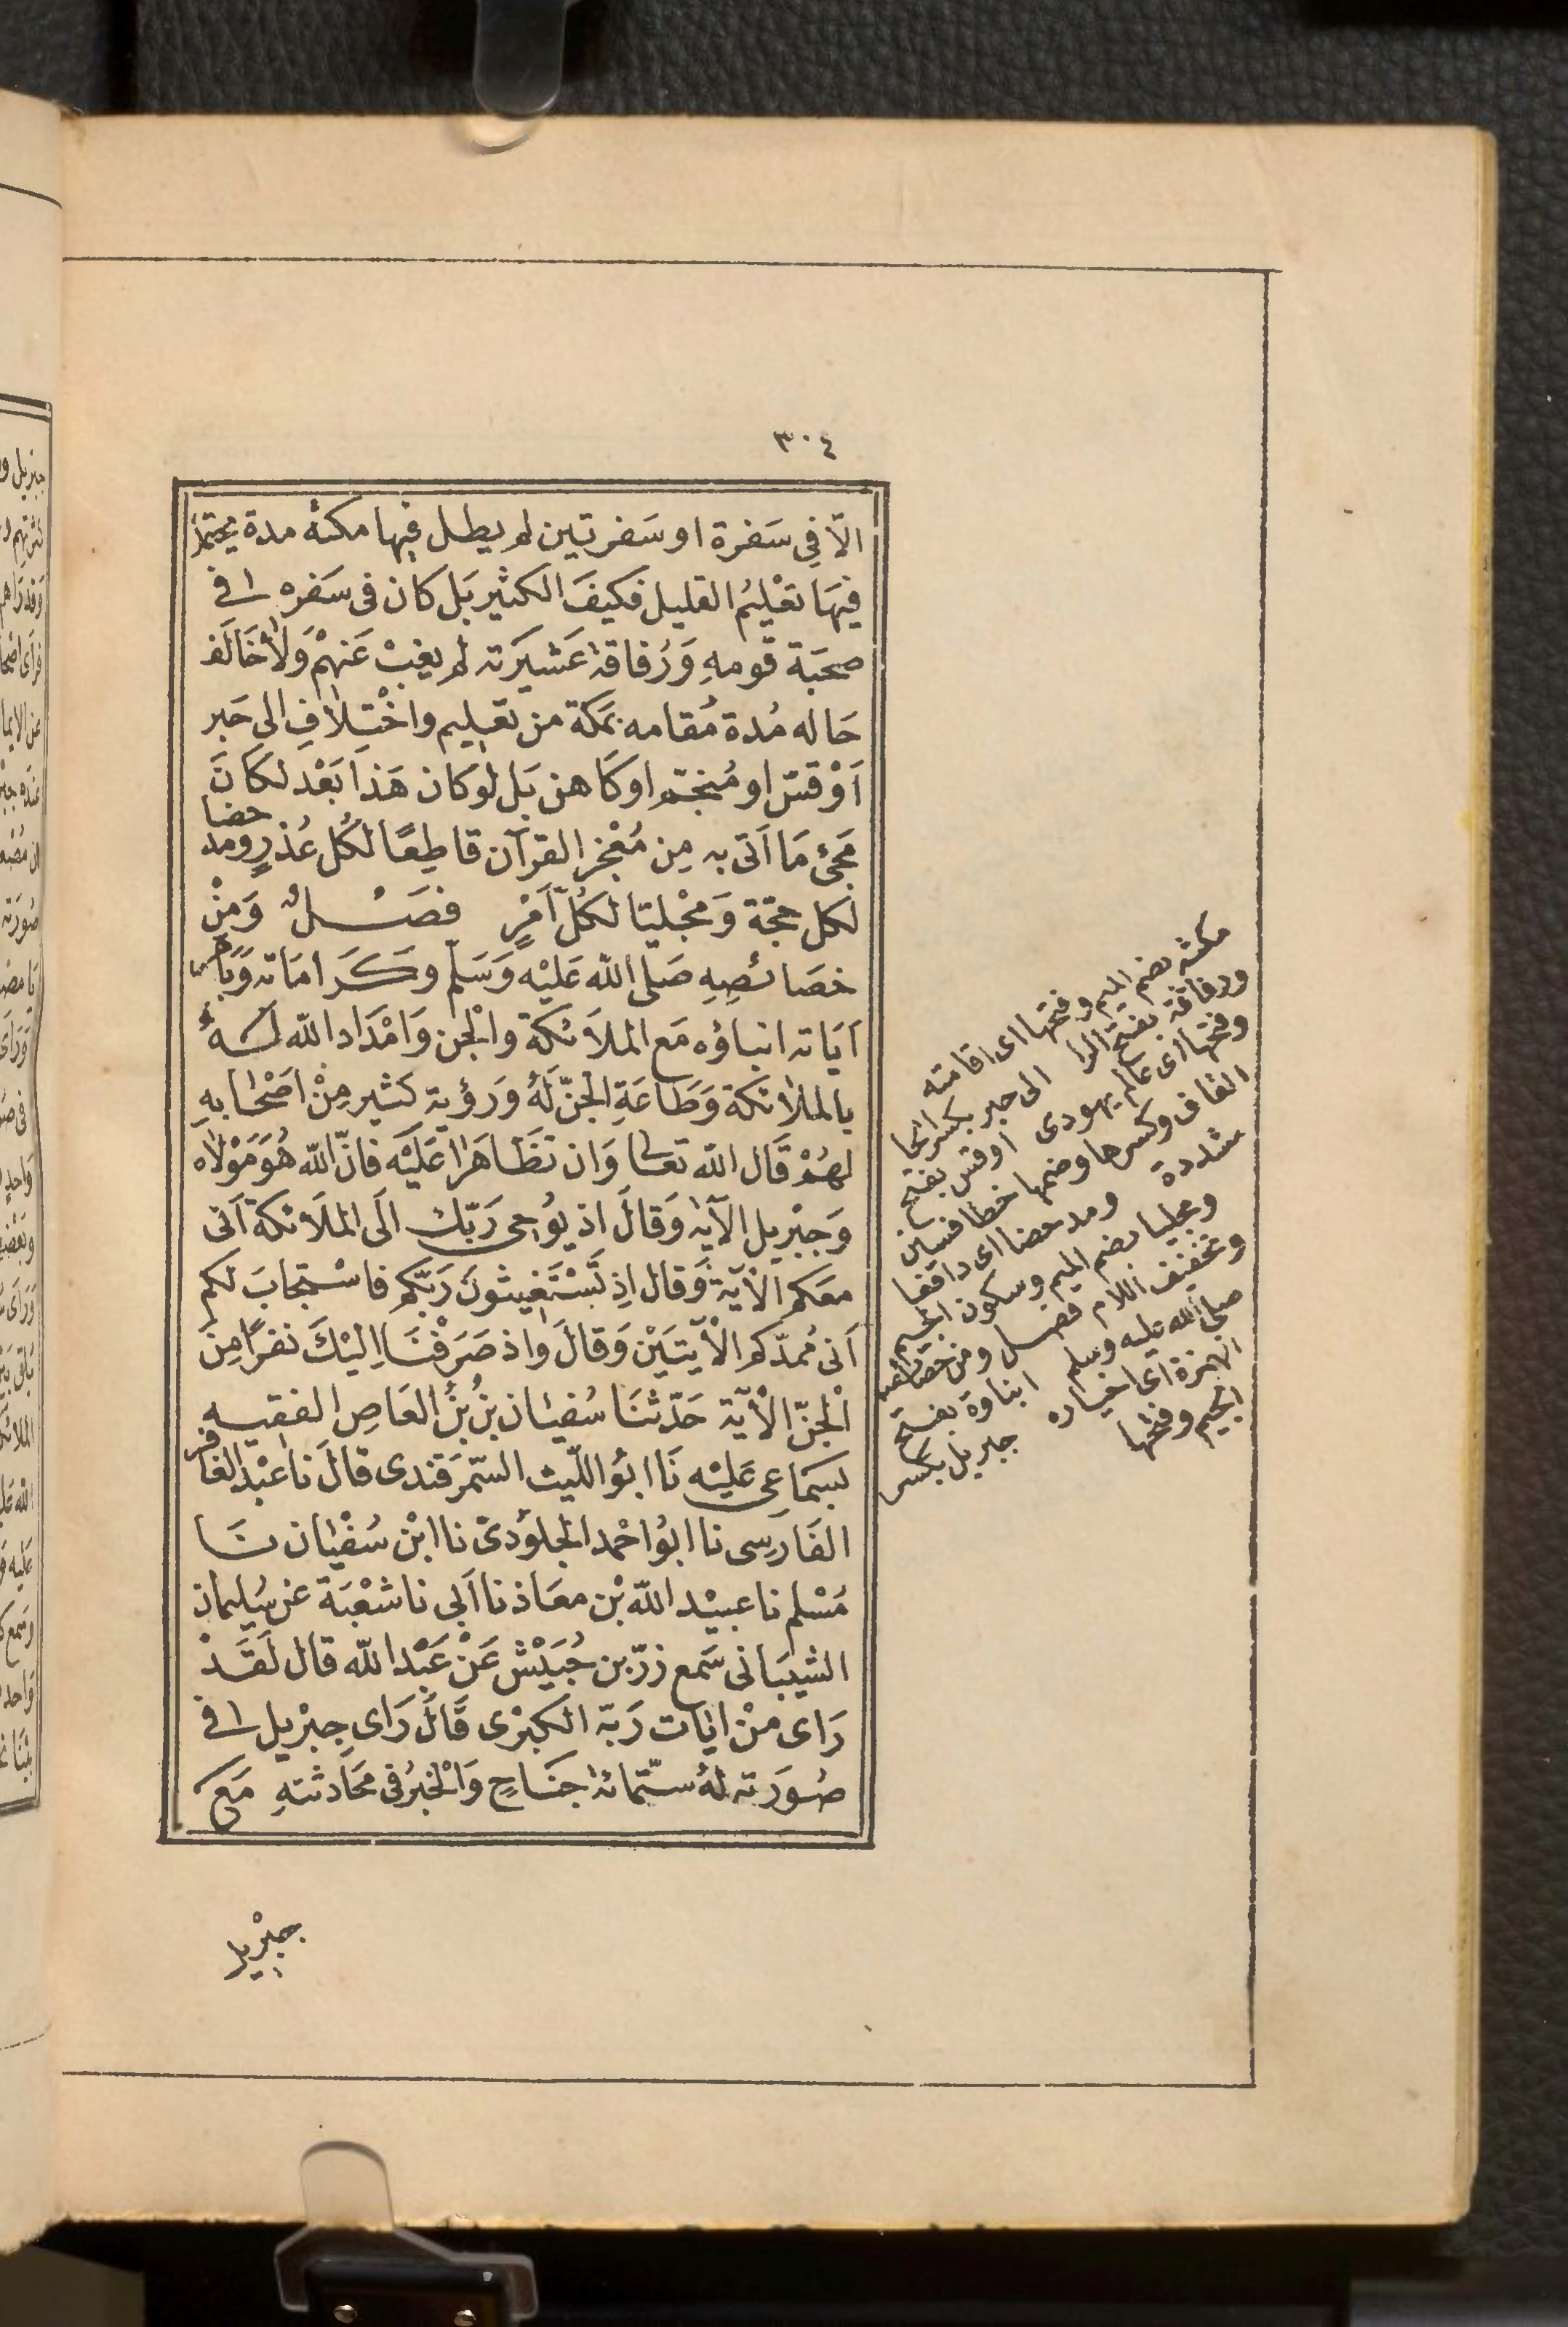 ٣٠٤
الّا فِى سَفرة او سَفرتين لم يطل فيها مكثهُ مدة يحتمل
فيهَا تعْلِيُم القليل فكيفَ الكثير بَل كان فى سَفره فى
صحبَة قومهِ وَرُفاقة عَشيَرته لم يغبْ عَنهمْ وَلا خَالَف
حَاله مُدة مُقامه بمكة من تعليم واخْتِلافِ الى حَبر
اَوْ قسّ او مُنجّم او كَاهن بَل لوْ كان هَذا بَعْد لكَانَ
مَجئ مَا اَتى به مِن مُعْجز القرآن قاطِعًا لكُل عُذرٍ ومدحضا
لكل حجّة وَمجْليًا لكُل اَمْرٍ فصَــلٌ وَمِنْ
خصَائصِهِ صَلى الله عَليْه وَسَلم وكَرامَاته وَبَاهر
آيَاته انباؤه مَع الملاَئكة والْجن وَامْدَاد الله لَــهُ
بالملائكة وَطَاعَةِ الجنّ لَهُ وَرؤية كثير مِنْ اَصْحَابهِ
لهُمْ قَال الله تعالى وَان تظَاهَرا عَليْه فانّ الله هُوَ مَوْلاه
وَجبْريل الآية وَقالَ اذ يُوحى رَبّك الَى الملَائكة اَنى
معَكم الآية وَقال اِذ تَسْتَغيثونَ رَبّكم فاسْتجابَ لكم
اَنى مُمدّكم الْآيتَيْن وَقالَ واذ صَرَفْنَا اِليْكَ نفرًا مِنَ
الْجنّ الْآية حَدّثنَا سُفيَان بْنُ العَاصِ الفقيه
بسَمَاعى عَليْه نَا ابوُ اللّيث السّمرَقندى قالَ نا عبْد الغافر
الفَارسِى نا ابوُ احْمد الجلوُدىّ نا ابْن سُفْيَان نَــا
مُسْلم نا عبيْد الله بْن معَاذ نا اَبى نا شعْبَة عن سُليمان
الشيبَانى سَمع زرّ بن حُبَيْش عَنْ عَبْد الله قال لَقَــدْ
رَاى منْ ايات رَبّه الكبْرى قَالَ رَاى جبْريل فى
صُورَته لهُ ستّمائة جنَاحٍ وَالْخبرُ فى محَادثتهِ مَع
جبْريل
مكثه بضم الميم وفتحها اى اقامته
ورفاقة بفتح الرا الى حبر بكسر الحا
وفتحها اى عالم يهودى اوقس بفتح
القاف وكسرها وضمها خطا فسين
مشددة ومدحضا اى دافعا
ومجليا بضم الميم وسكون الجيم
وتخفيف اللام فصل ومن خصائصه
صلى الله عليه وسلم انباوه بفتح
الهمزة اى اخباره جبريل بكسر
الجيم وفتحها